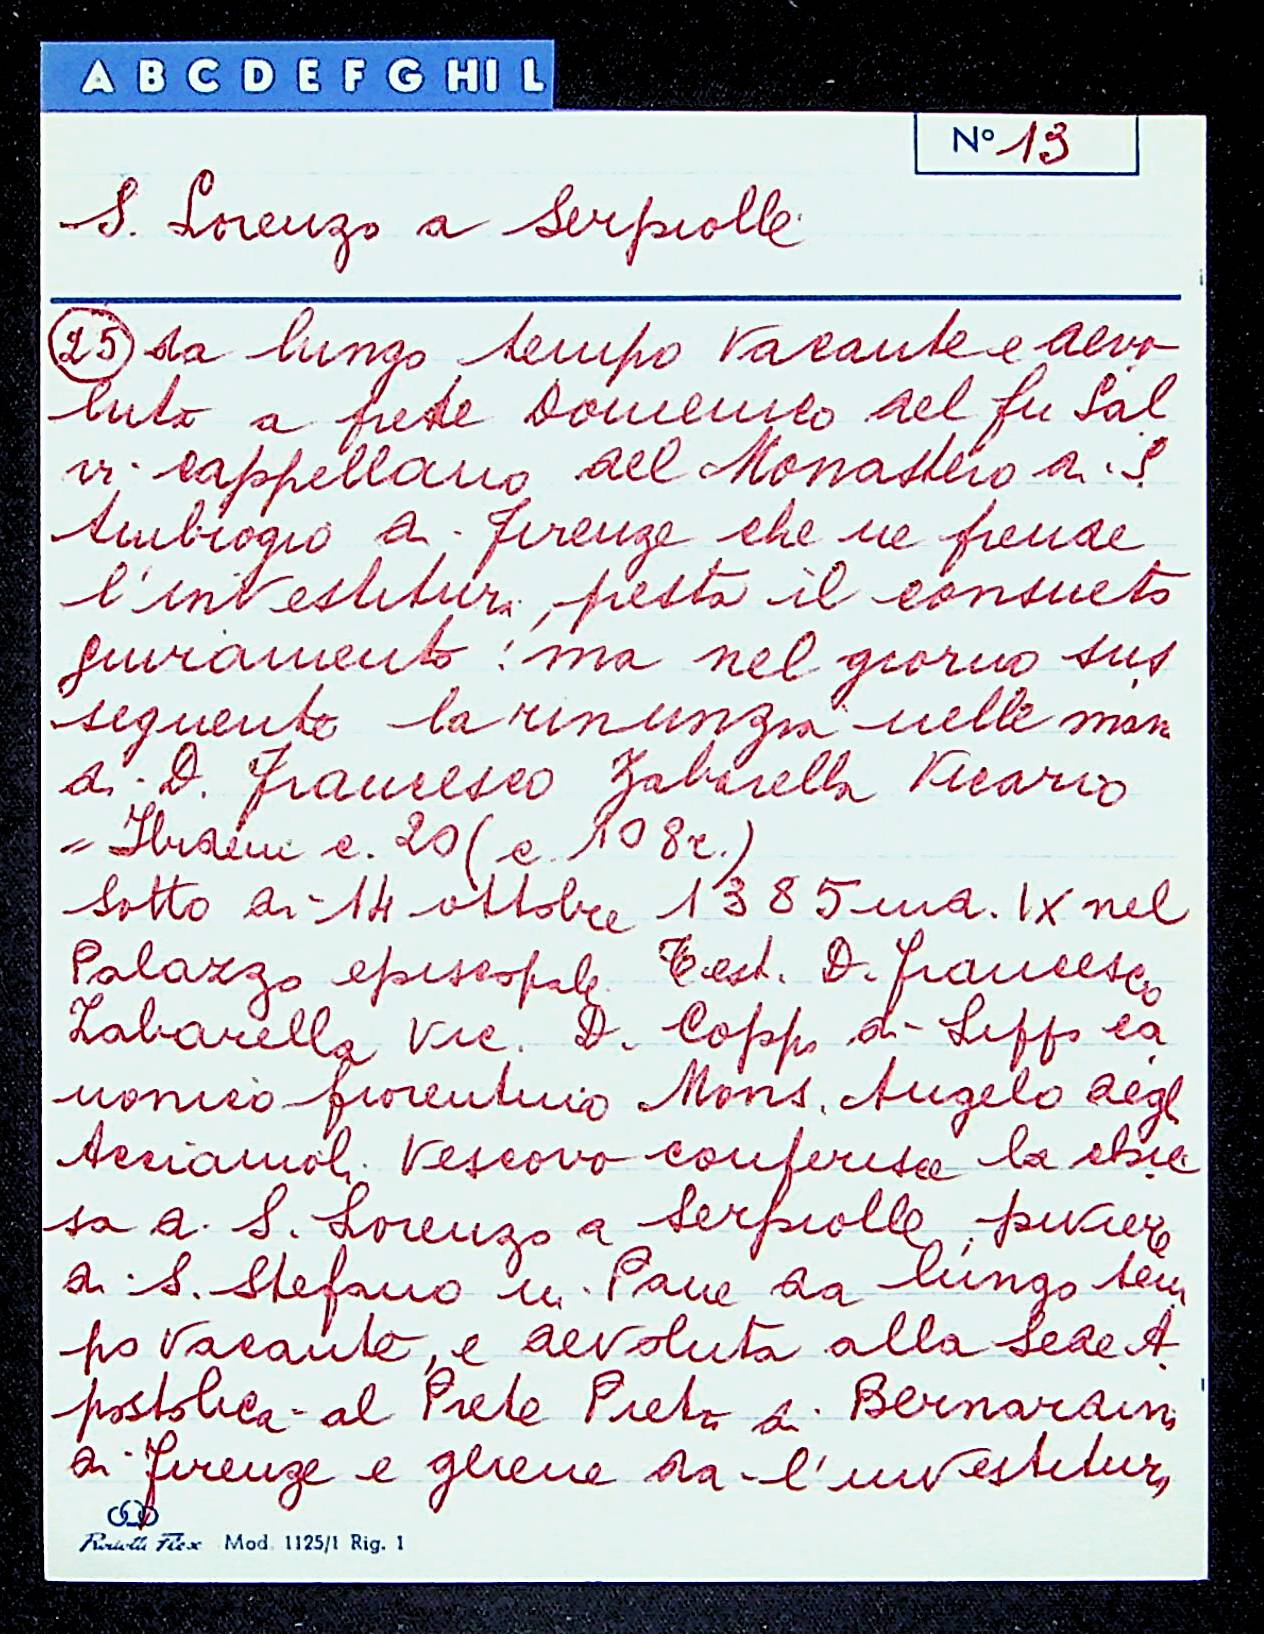 A B C D E F G HI L
N° 13
S. Lorenzo a Serpiolle
25 da lungo tempo vacante e devo
luta a prete Domenico del fu Sal
vi cappellano del Monastero di S.
Ambrogio di Firenze che ne prende
l'investitura, presta il consueto
giuramento: ma nel giorno sus
seguente la rinunzia nelle mani
di D. Francesco Zabarella Vicario
= Ibidem c. 20 (c. 108r.)
Sotto di 14 ottobre 1385 ind. IX nel
Palazzo episcopale Test. D. Francesco
Zabarella Vic. D. Coppo di Lippo ca
nonico fiorentino Mons. Angelo degl
Acciaiuoli Vescovo conferisce la chie
sa di S. Lorenzo a Serpiolle, piviere
di S. Stefano in Pane da lungo tem
po vacante, e devoluta alla Sede A
postolica al Prete Pietro di Bernardino
di Firenze e gliene da l'investitura
Mod. 1125/1 Rig. 1